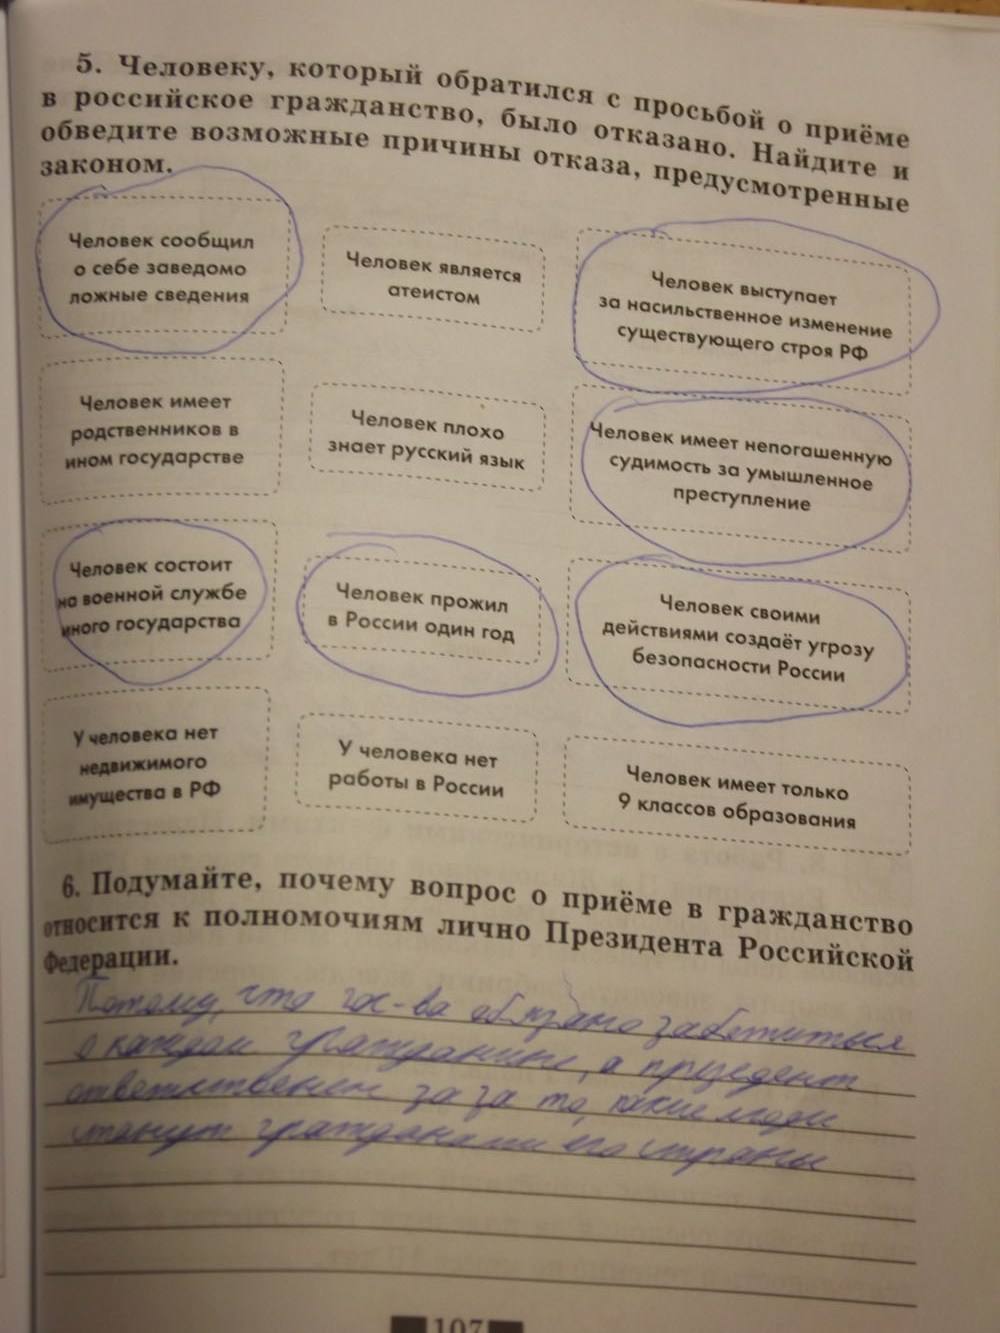 5. Человеку, который обратился с просьбой о приёме
в российское гражданство, было отказано. Найдите и
обведите возможные причины отказа, предусмотренные
законом.
Человек сообщил
о себе заведомо
ложные сведения
Человек является
атеистом
Человек выступает
за насильственное изменение
существующего строя РФ
Человек имеет
родственников в
ином государстве
Человек плохо
знает русский язык
Человек имеет непогашенную
судимость за умышленное
преступление
Человек состоит
на военной службе
иного государства
Человек прожил
в России один год
Человек своими
действиями создаёт угрозу
безопасности России
У человека нет
недвижимого
имущества в РФ
У человека нет
работы в России
Человек имеет только
9 классов образования
6. Подумайте, почему вопрос о приёме в гражданство
относится к полномочиям лично Президента Российской
Федерации.
Потому, что гос-ва обязано заботиться
о каждом гражданине, а президент
ответственен за за то, какие люди
станут гражданами его страны
107